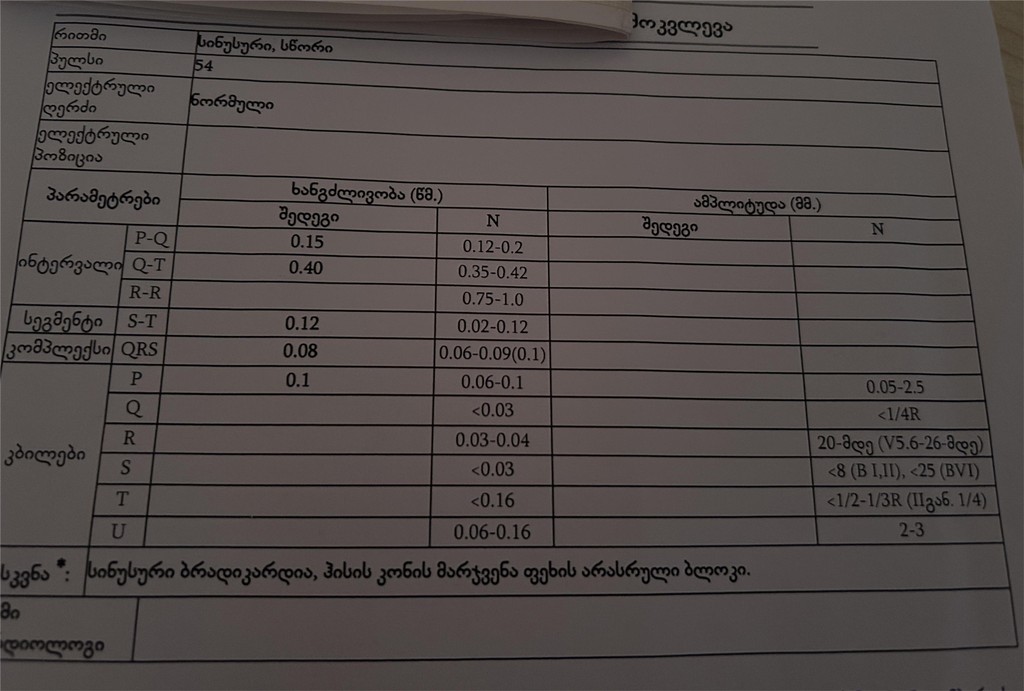 რითმი სინუსური, სწორი
პულსი 54
ელექტრული
ღერძი ნორმული
ელექტრული
პოზიცია
პარამეტრები ხანგძლივობა (წმ.) ამპლიტუდა (მმ.)
შედეგი N შედეგი N
ინტერვალი P-Q 0.15 0.12-0.2
Q-T 0.40 0.35-0.42
R-R 0.75-1.0
სეგმენტი S-T 0.12 0.02-0.12
კომპლექსი QRS 0.08 0.06-0.09(0.1)
კბილები P 0.1 0.06-0.1 0.05-2.5
Q <0.03 <1/4R
R 0.03-0.04 20-მდე (V5.6-26-მდე)
S <0.03 <8 (B I,II), <25 (BVI)
T <0.16 <1/2-1/3R (IIგან. 1/4)
U 0.06-0.16 2-3
სინუსური ბრადიკარდია, ჰისის კონის მარჯვენა ფეხის არასრული ბლოკი.